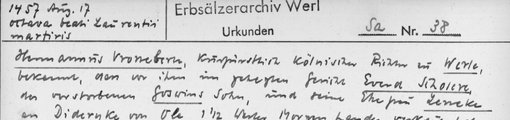 1457 Aug. 17
octava beati Laurentii
martiris
Erbsälzerarchiv Werl
Urkunden
Sa Nr. 38
Hermannus Vrorebern, Kurfürstlich Kölnischer Richter zu Werle,
bekennt, dass vor ihm im gehegten Gericht Everd Scholere,
des verstorbenen Goswins Sohn, und seine Ehefrau Zeneke
an Diderike von Ole 1 1/2 Werler Morgen Landes